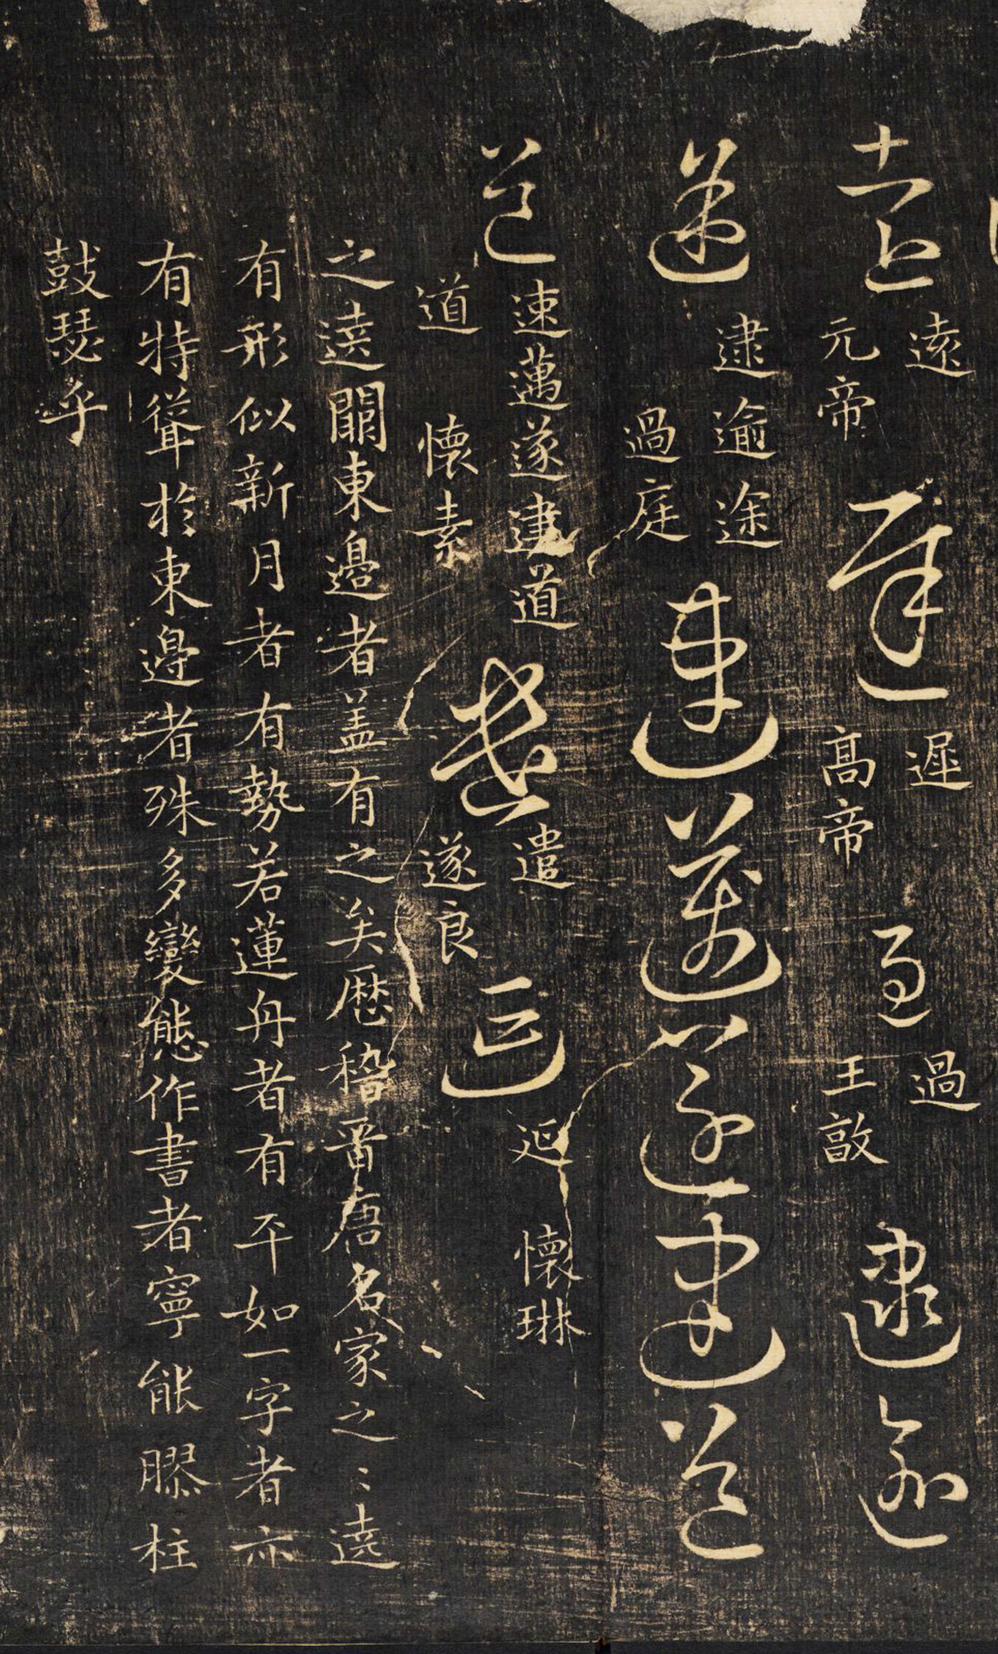 遠 遠 元帝 遲 遲 高帝 過 過 王敦 逮 逾
途 逮逾途 過庭 速 邁 遂 建 道
道 速邁遂建道 道 懷素 遣 遣 遂良 延 延 懷琳
之遶關東邊者盖有之矣歷稽晉唐名家之〻遶
有形似新月者有勢若蓮舟者有平如一字者亦
有特聳於東邊者殊多變態作書者寧能膠柱
鼓瑟乎